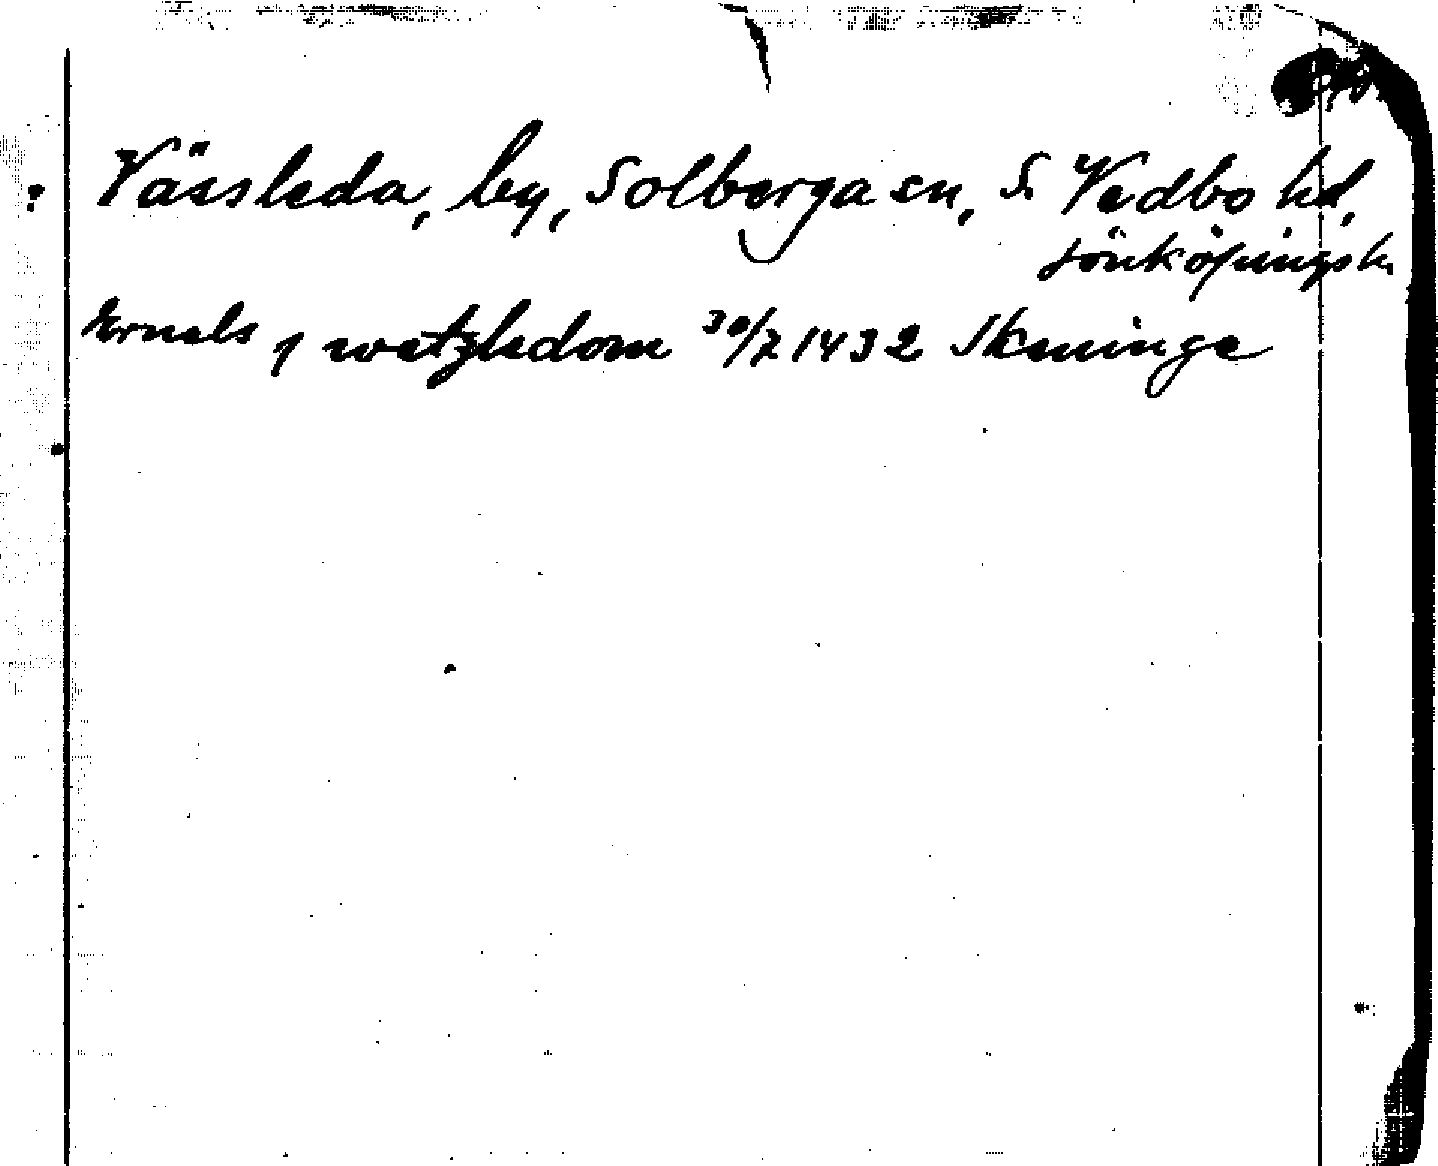 Vässleda, by, Solberga sn, S. Vedbo hd,
Jönköpings l.
Ernels j wetzledom 30/7 1432 Skeninge